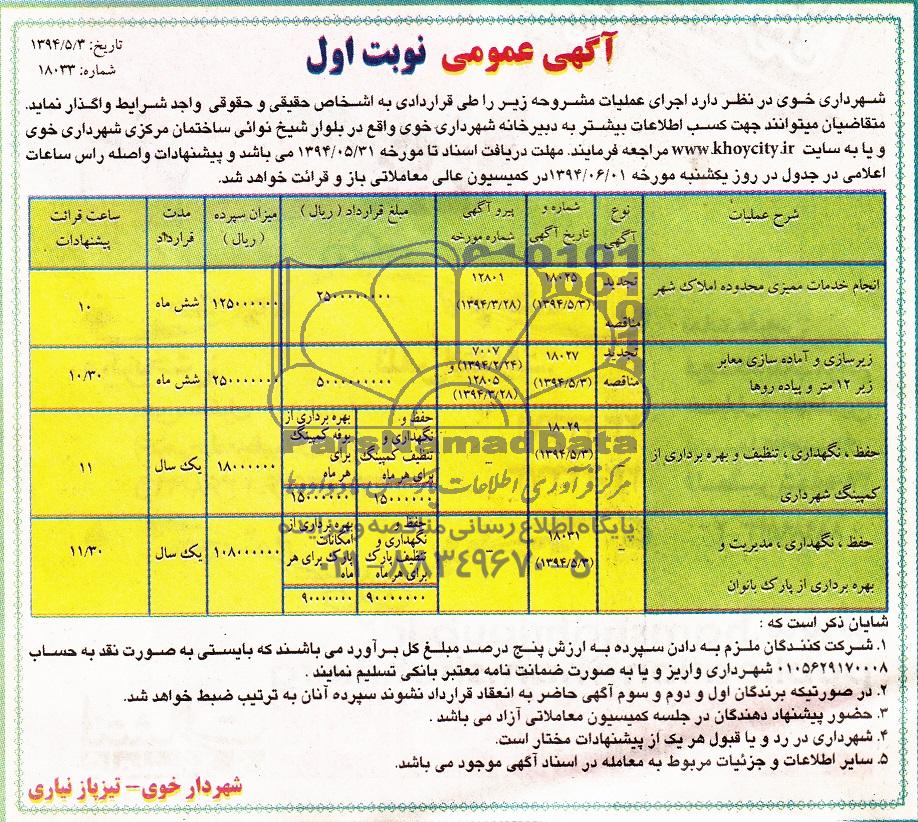 تاریخ: ۱۳۹۴/۵/۳
شماره: ۱۸۰۳۳
آگهی عمومی نوبت اول
شهرداری خوی در نظر دارد اجرای عملیات مشروحه زیر را طی قراردادی به اشخاص حقیقی و حقوقی واجد شرایط واگذار نماید.
متقاضیان میتوانند جهت کسب اطلاعات بیشتر به دبیرخانه شهرداری خوی واقع در بلوار شیخ نوائی ساختمان مرکزی شهرداری خوی
و یا به سایت www.khoycity.ir مراجعه فرمایند. مهلت دریافت اسناد تا مورخه ۱۳۹۴/۰۵/۳۱ می باشد و پیشنهادات واصله راس ساعات
اعلامی در جدول در روز یکشنبه مورخه ۱۳۹۴/۰۶/۰۱در کمیسیون عالی معاملاتی باز و قرائت خواهد شد.
شرح عملیات
نوع
آگهی
شماره و
تاریخ آگهی
پیرو آگهی
شماره مورخه
مبلغ قرارداد ( ریال )
میزان سپرده
( ریال )
مدت
قرارداد
ساعت قرائت
پیشنهادات
انجام خدمات ممیزی محدوده املاک شهر
تجدید
مناقصه
۱۸۰۲۵
(۱۳۹۴/۵/۳)
۱۲۸۰۱
(۱۳۹۴/۳/۲۸)
۲۵۰۰۰۰۰۰۰۰
۱۲۵۰۰۰۰۰۰
شش ماه
۱۰
زیرسازی و آماده سازی معابر
زیر ۱۲ متر و پیاده روها
تجدید
مناقصه
۱۸۰۲۷
(۱۳۹۴/۵/۳)
۷۰۰۷
(۱۳۹۴/۲/۲۴) و
۱۲۸۰۵
(۱۳۹۴/۳/۲۸)
۵۰۰۰۰۰۰۰۰۰
۲۵۰۰۰۰۰۰۰
شش ماه
۱۰/۳۰
حفظ ، نگهداری ، تنظیف و بهره برداری از
کمپینگ شهرداری
_
۱۸۰۲۹
(۱۳۹۴/۵/۳)
_
حفظ و
نگهداری و
تنظیف کمپینگ
برای هر ماه
۱۵۰۰۰۰۰۰
بهره برداری از
بوفه کمپینگ
برای
هر ماه
۱۵۰۰۰۰۰۰
۱۸۰۰۰۰۰۰
یک سال
۱۱
حفظ ، نگهداری ، مدیریت و
بهره برداری از پارک بانوان
_
۱۸۰۳۱
(۱۳۹۴/۵/۳)
حفظ و
نگهداری و
تنظیف پارک
برای هر ماه
۹۰۰۰۰۰۰۰
بهره برداری از
امکانات
پارک برای هر
ماه
۹۰۰۰۰۰۰۰
۱۰۸۰۰۰۰۰۰
یک سال
۱۱/۳۰
ParsNamadData
مرکز فرآوری اطلاعات پارس نماد داده ها
پایگاه اطلاع رسانی مناقصه و مزایده
۰۲۱-۸۸۳۴۹۶۷۰-۵
شایان ذکر است که :
۱. شرکت کنندگان ملزم به دادن سپرده به ارزش پنج درصد مبلغ کل برآورد می باشند که بایستی به صورت نقد به حساب
۰۱۰۵۶۲۹۱۷۰۰۰۸ شهرداری واریز و یا به صورت ضمانت نامه معتبر بانکی تسلیم نمایند .
۲. در صورتیکه برندگان اول و دوم و سوم آگهی حاضر به انعقاد قرارداد نشوند سپرده آنان به ترتیب ضبط خواهد شد.
۳. حضور پیشنهاد دهندگان در جلسه کمیسیون معاملاتی آزاد می باشد .
۴. شهرداری در رد و یا قبول هر یک از پیشنهادات مختار است.
۵. سایر اطلاعات و جزئیات مربوط به معامله در اسناد آگهی موجود می باشد.
شهردار خوی- تیزپاز نیاری